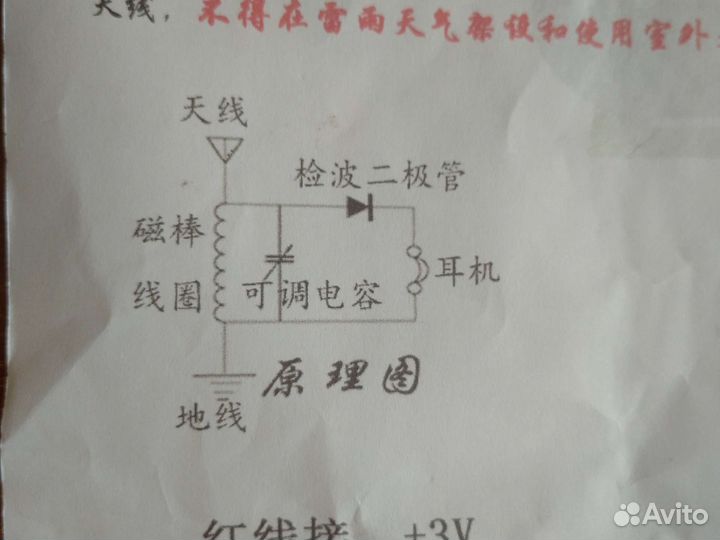 天线，不得在雷雨天气架设和使用室外
天线
检波二极管
磁棒
线圈
可调电容
耳机
原理图
地线
红线接 +3V
Avito